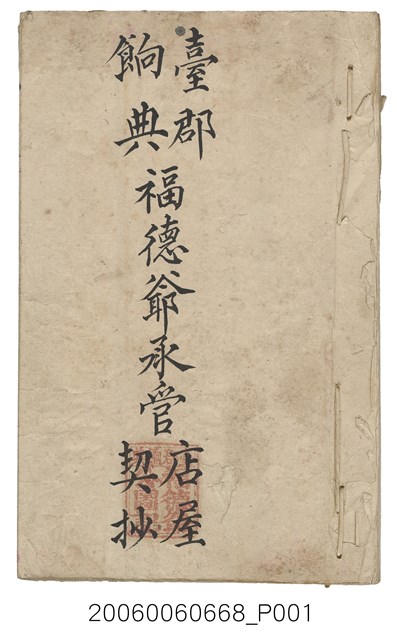 臺郡
餉典
福德爺承管
店屋
契抄
20060060668_P001